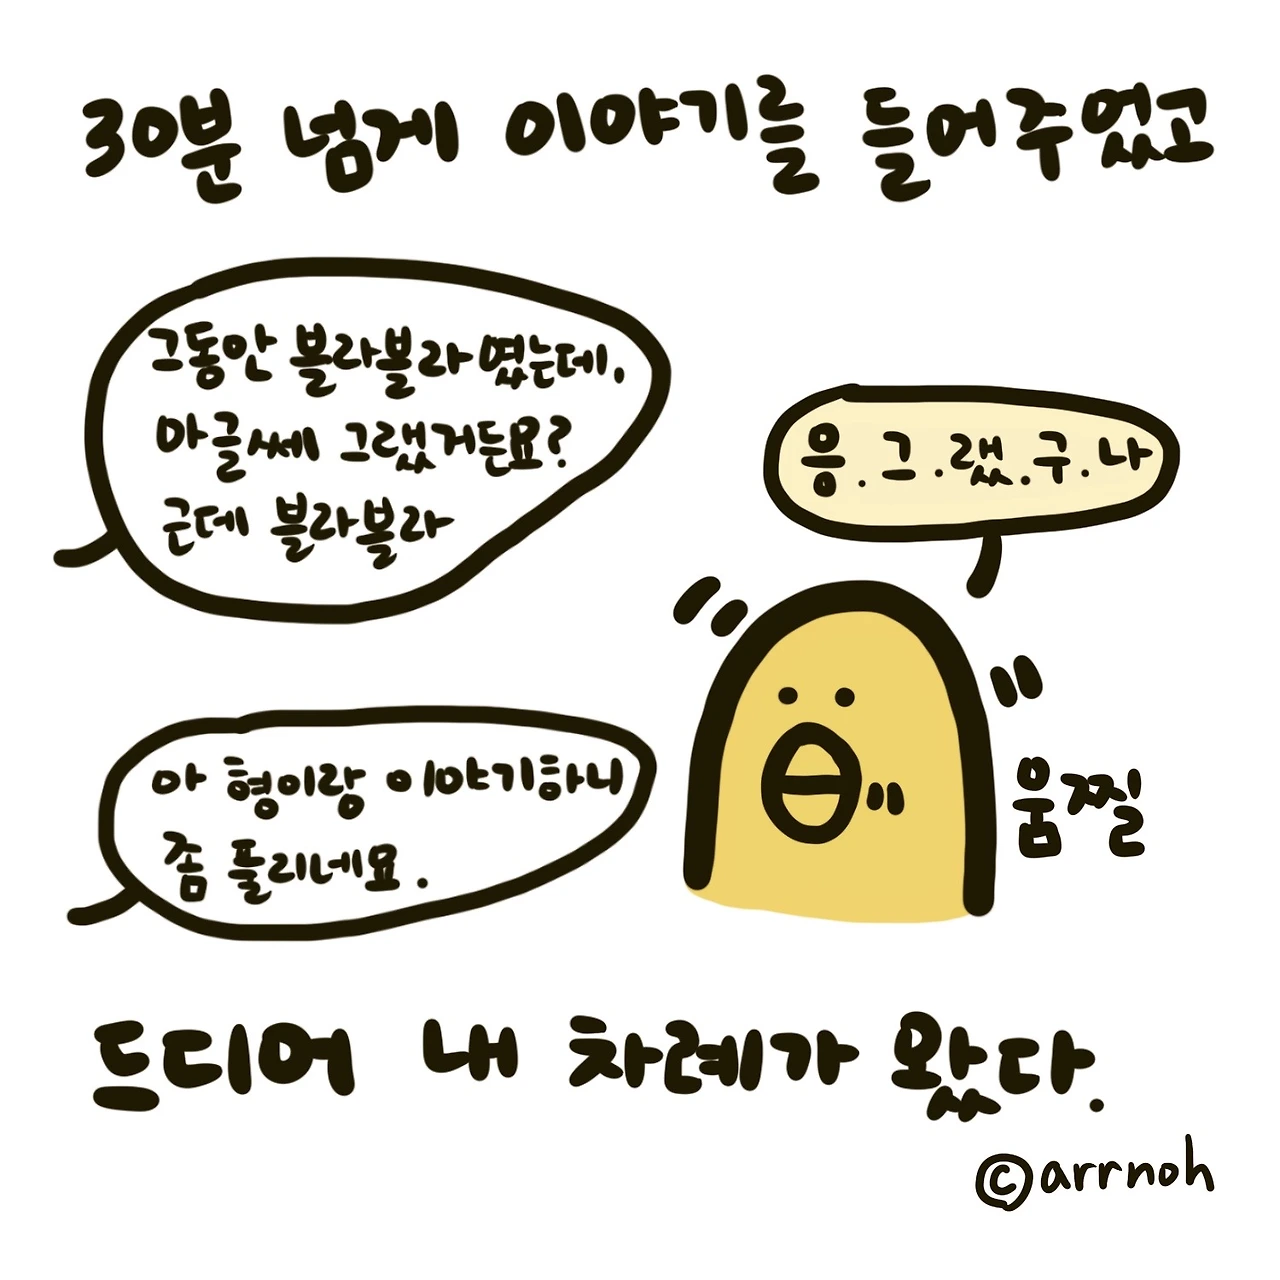 30분 넘게 이야기를 들어주었고
그동안 블라블라였는데,
마글쎄 그랬거든요?
근데 블라블라
응.그.랬.구.나
아 형이랑 이야기하니
좀 풀리네요.
움찔
드디어 내 차례가 왔다.
©arrnoh